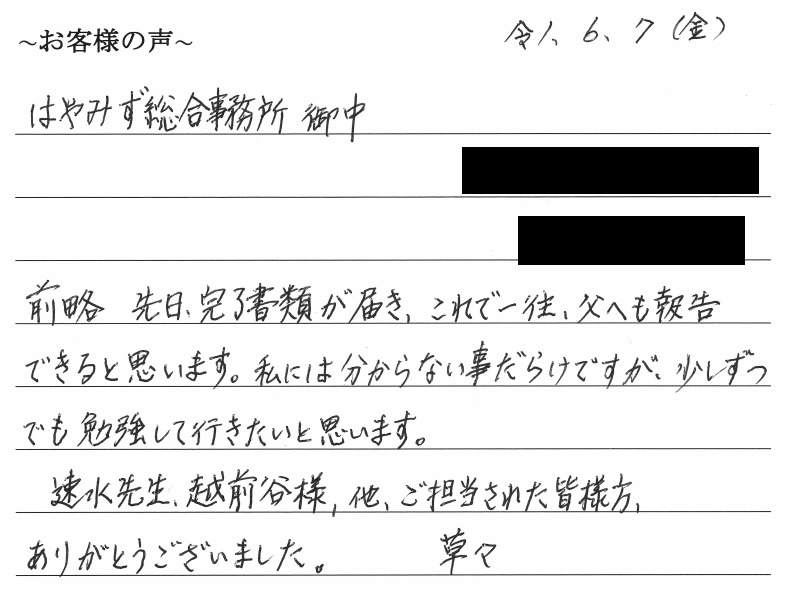 ~お客様の声~
令1、6、7（金）
はやみず総合事務所 御中
前略 先日、完了書類が届き、これで一往、父へも報告
できると思います。私には分からない事だらけですが、少しずつ
でも勉強して行きたいと思います。
速水先生、越前谷様、他、ご担当された皆様方、
ありがとうございました。 草々